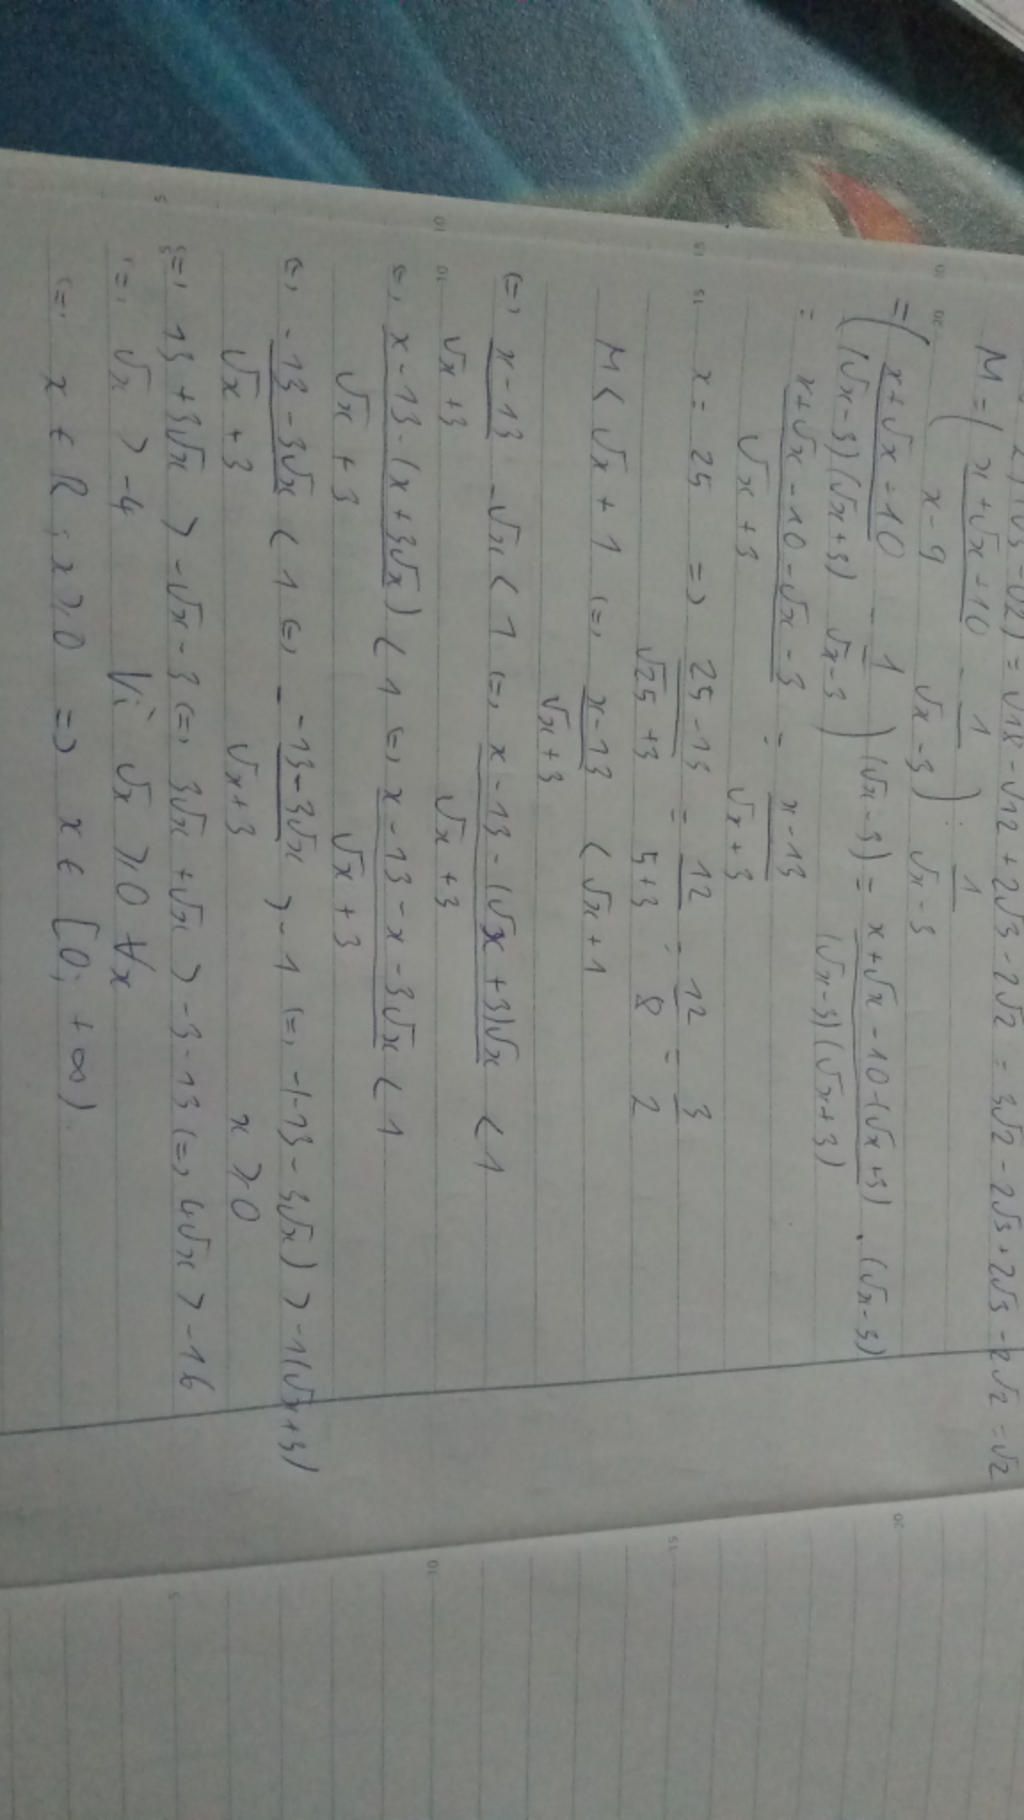 2) (√3 - √2) = √18 - √12 + 2√3 - 2√2 = 3√2 - 2√3 + 2√3 - 2√2 = √2
M = ( (x+√x+10)/(x-9) - 1/(√x-3) ) : 1/(√x-3)
= ( (x+√x-10)/((√x-3)(√x+3)) - 1/(√x-3) ) (√x-3) = (x+√x-10-(√x+3))/((√x-3)(√x+3)) . (√x-3)
= (x+√x-10-√x-3)/(√x+3) = (x-13)/(√x+3)
x = 25 => (25-13)/(√25+3) = 12/(5+3) = 12/8 = 3/2
M < √x + 1 (=, (x-13)/(√x+3) < √x+1
(=, (x-13)/(√x+3) - √x < 1 (=, (x-13-(√x+3)√x)/(√x+3) < 1
(=, (x-13-(x+3√x))/(√x+3) < 1 (=, (x-13-x-3√x)/(√x+3) < 1
(=, (-13-3√x)/(√x+3) < 1 (=, - (-13-3√x)/(√x+3) > -1 (=, -(-13-3√x) > -1(√x+3)
x ≥ 0
(=, 13+3√x > -√x-3 (=, 3√x+√x > -3-13 (=, 4√x > -16
(=, √x > -4 Vì √x ≥ 0 ∀x
(=, x ∈ R ; x ≥ 0 => x ∈ [0; +∞)